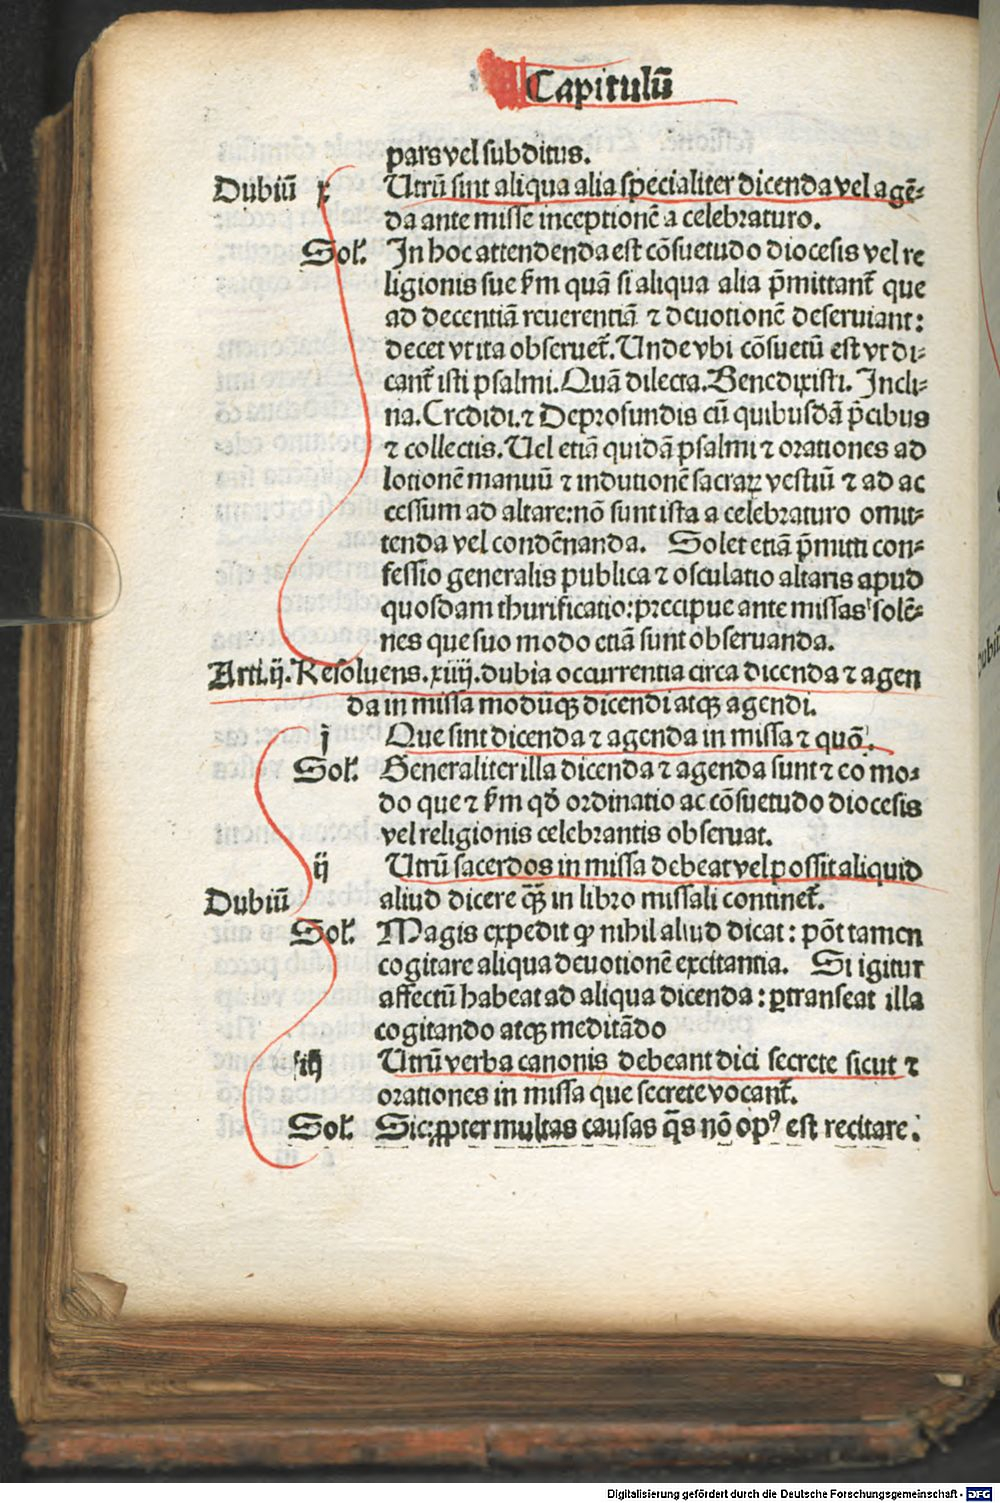 Capitulū
pars vel subditus.
Dubiū x Utrū sint aliqua alia specialiter dicenda vel agē⸗
da ante misse inceptionē a celebraturo.
Sol'. In hoc attendenda est cōsuetudo diocesis vel re
ligionis sue s'm quā si aliqua alia p̄mittant᷑ que
ad decentiā reuerentiā ⁊ deuotionē deseruiant:
decet vt ita obseruet᷑. Unde vbi cōsuetū est vt di⸗
cant᷑ isti psalmi. Quā dilecta. Benedixisti. Incli⸗
na. Credidi. ⁊ Deprofundis cū quibusdā p̄cibus
⁊ collectis. Uel etiā quidā psalmi ⁊ orationes ad
lotionē manuū ⁊ indutionē sacraꝝ vestiū ⁊ ad ac
cessum ad altare: nō sunt ista a celebraturo omit⸗
tenda vel condēnanda. Solet etiā p̄mitti con⸗
fessio generalis publica ⁊ osculatio altaris apud
quosdam thurificatio: precipue ante missas solē⸗
nes que suo modo etiā sunt obseruanda.
Arti. ij. Resoluens. xiiij. dubia occurrentia circa dicenda ⁊ agen
da in missa modūqꝫ dicendi atqꝫ agendi.
j Que sint dicenda ⁊ agenda in missa ⁊ quō.
Sol'. Generaliter illa dicenda ⁊ agenda sunt ⁊ eo mo⸗
do que ⁊ s'm qd̄ ordinatio ac cōsuetudo diocesis
vel religionis celebrantis obseruat.
ij Utrū sacerdos in missa debeat vel possit aliquid
Dubiū aliud dicere q̄ꝫ in libro missali continet᷑.
Sol'. Magis expedit ꝙ nihil aliud dicat: pōt tamen
cogitare aliqua deuotionē excitantia. Si igitur
affectū habeat ad aliqua dicenda: ꝑtranseat illa
cogitando atqꝫ meditādo
iij Utrū verba canonis debeant dici secrete sicut ⁊
orationes in missa que secrete vocant᷑.
Sol'. Sic: ꝓpter multas causas q̄s nō opꝰ est recitare.
Digitalisierung gefördert durch die Deutsche Forschungsgemeinschaft - DFG